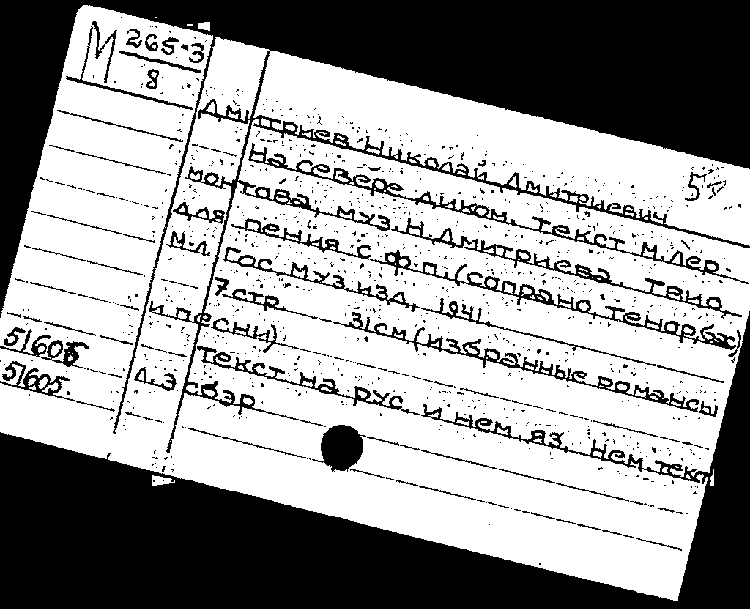 М 265-3
8
5
Дмитриев Николай Дмитриевич
На севере диком. Текст М.Лер-
монтова, муз. Н.Дмитриева. Трио
для пения с ф.п. (сопрано, тенор, бас)
М.-Л. Гос. муз. изд, 1941.
7 стр. 31 см (избранные романсы
и песни)
Текст на рус. и нем. яз. Нем. текст
Л. Эсбэр
51605
51605.